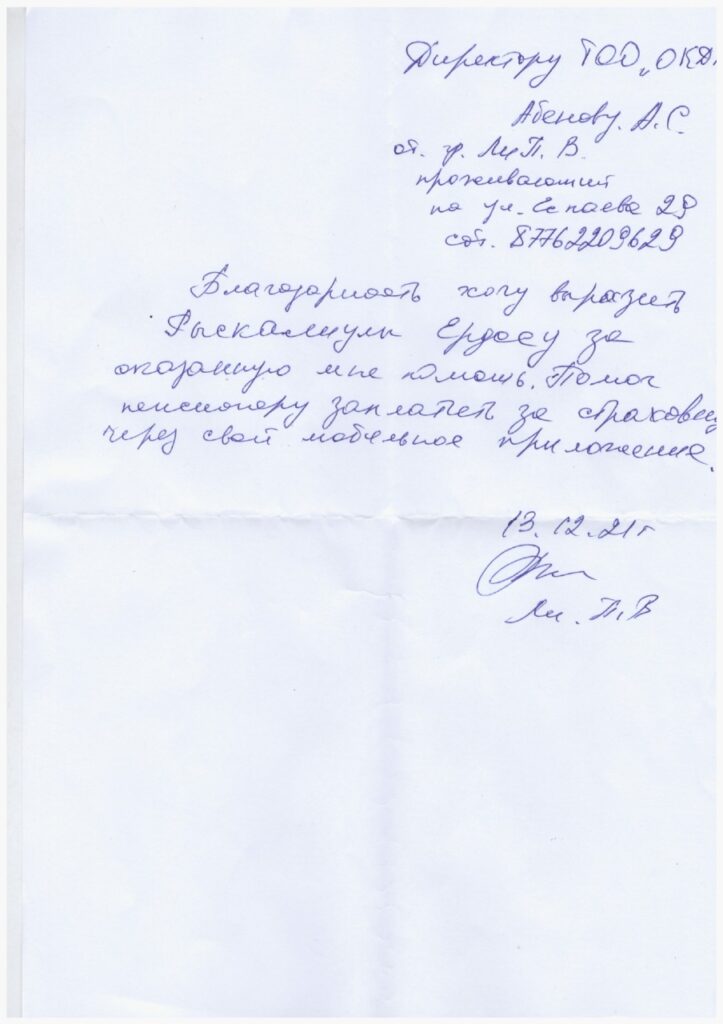 Директору ТОО „ОКД
Абенову. А.С.
от. гр. Ли П. В.
проживающий
по ул. Еспаева 29
сот. 87762209629
Благодарность хочу выразить
Рыскалиулы Ердосу за
оказанную мне помощь. Помог
пенсионеру заплатить за страховку
через свой мобильное приложение.
13.12.21г
Ли. П.В